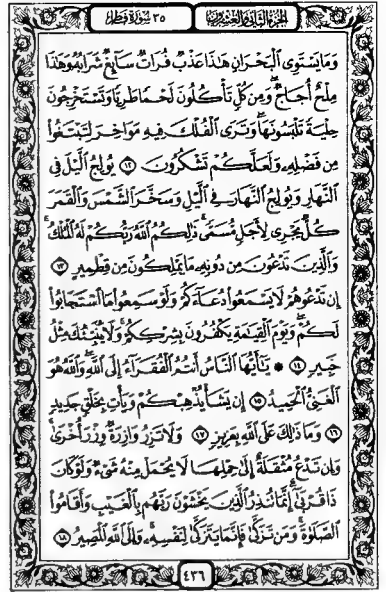 ٣٥ سُورَةُ فَاطِر الجزء الثاني والعشرون
وَمَا يَسْتَوِى ٱلْبَحْرَانِ هَٰذَا عَذْبٌ فُرَاتٌ سَآئِغٌ شَرَابُهُۥ وَهَٰذَا
مِلْحٌ أُجَاجٌ ۖ وَمِن كُلٍّ تَأْكُلُونَ لَحْمًا طَرِيًّا وَتَسْتَخْرِجُونَ
حِلْيَةً تَلْبَسُونَهَا ۖ وَتَرَى ٱلْفُلْكَ فِيهِ مَوَاخِرَ لِتَبْتَغُوا۟
مِن فَضْلِهِۦ وَلَعَلَّكُمْ تَشْكُرُونَ ١٢ يُولِجُ ٱلَّيْلَ فِى
ٱلنَّهَارِ وَيُولِجُ ٱلنَّهَارَ فِى ٱلَّيْلِ وَسَخَّرَ ٱلشَّمْسَ وَٱلْقَمَرَ
كُلٌّ يَجْرِى لِأَجَلٍ مُّسَمًّى ۚ ذَٰلِكُمُ ٱللَّهُ رَبُّكُمْ لَهُ ٱلْمُلْكُ ۚ
وَٱلَّذِينَ تَدْعُونَ مِن دُونِهِۦ مَا يَمْلِكُونَ مِن قِطْمِيرٍ ١٣
إِن تَدْعُوهُمْ لَا يَسْمَعُوا۟ دُعَآءَكُمْ وَلَوْ سَمِعُوا۟ مَا ٱسْتَجَابُوا۟
لَكُمْ ۖ وَيَوْمَ ٱلْقِيَٰمَةِ يَكْفُرُونَ بِشِرْكِكُمْ ۚ وَلَا يُنَبِّئُكَ مِثْلُ
خَبِيرٍ ١٤ ۞ يَٰٓأَيُّهَا ٱلنَّاسُ أَنتُمُ ٱلْفُقَرَآءُ إِلَى ٱللَّهِ ۖ وَٱللَّهُ هُوَ
ٱلْغَنِىُّ ٱلْحَمِيدُ ١٥ إِن يَشَأْ يُذْهِبْكُمْ وَيَأْتِ بِخَلْقٍ جَدِيدٍ
١٦ وَمَا ذَٰلِكَ عَلَى ٱللَّهِ بِعَزِيزٍ ١٧ وَلَا تَزِرُ وَازِرَةٌ وِزْرَ أُخْرَىٰ ۚ
وَإِن تَدْعُ مُثْقَلَةٌ إِلَىٰ حِمْلِهَا لَا يُحْمَلْ مِنْهُ شَىْءٌ وَلَوْ كَانَ
ذَا قُرْبَىٰٓ ۗ إِنَّمَا تُنذِرُ ٱلَّذِينَ يَخْشَوْنَ رَبَّهُم بِٱلْغَيْبِ وَأَقَامُوا۟
ٱلصَّلَوٰةَ ۚ وَمَن تَزَكَّىٰ فَإِنَّمَا يَتَزَكَّىٰ لِنَفْسِهِۦ ۚ وَإِلَى ٱللَّهِ ٱلْمَصِيرُ ١٨
٤٣٦